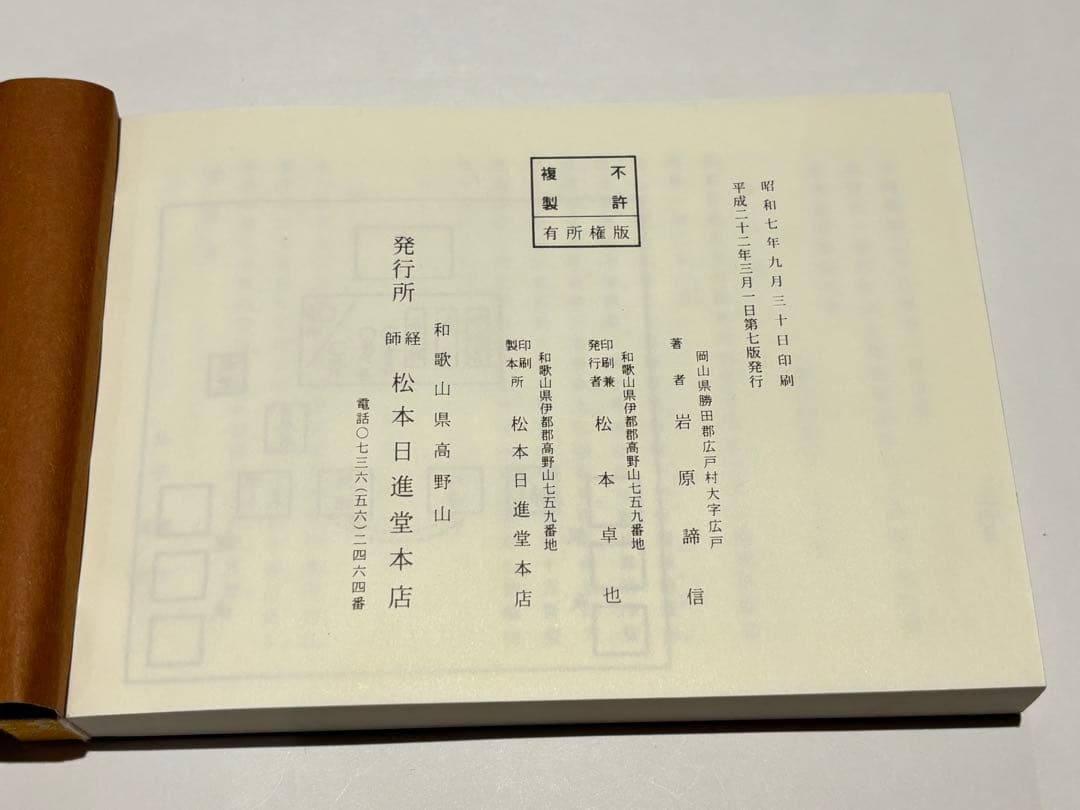 昭和七年九月三十日印刷
平成二十二年三月一日第七版発行
不許
複製
版権所有
岡山県勝田郡広戸村大字広戸
著者 岩原諦信
和歌山県伊都郡高野山七五九番地
印刷兼発行者 松本卓也
和歌山県伊都郡高野山七五九番地
印刷製本所 松本日進堂本店
和歌山県高野山
発行所 経師 松本日進堂本店
電話〇七三六(五六)二四六四番